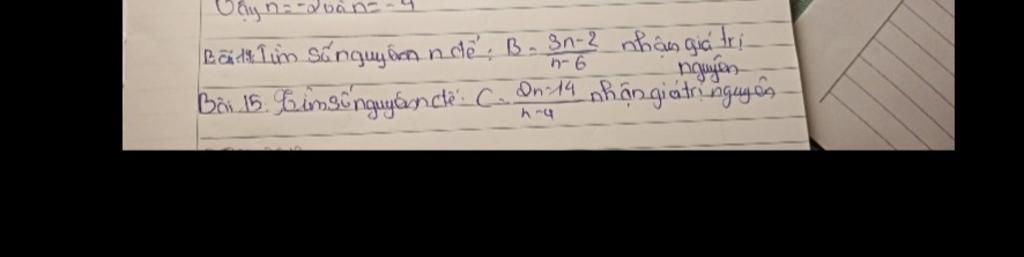 Vậy n = -2 và n = -4
Bài 14: Tìm số nguyên n để: B = 3n-2/n-6 nhận giá trị
nguyên
Bài 15. Tìm số nguyên n để: C = 2n-14/n-4 nhận giá trị nguyên